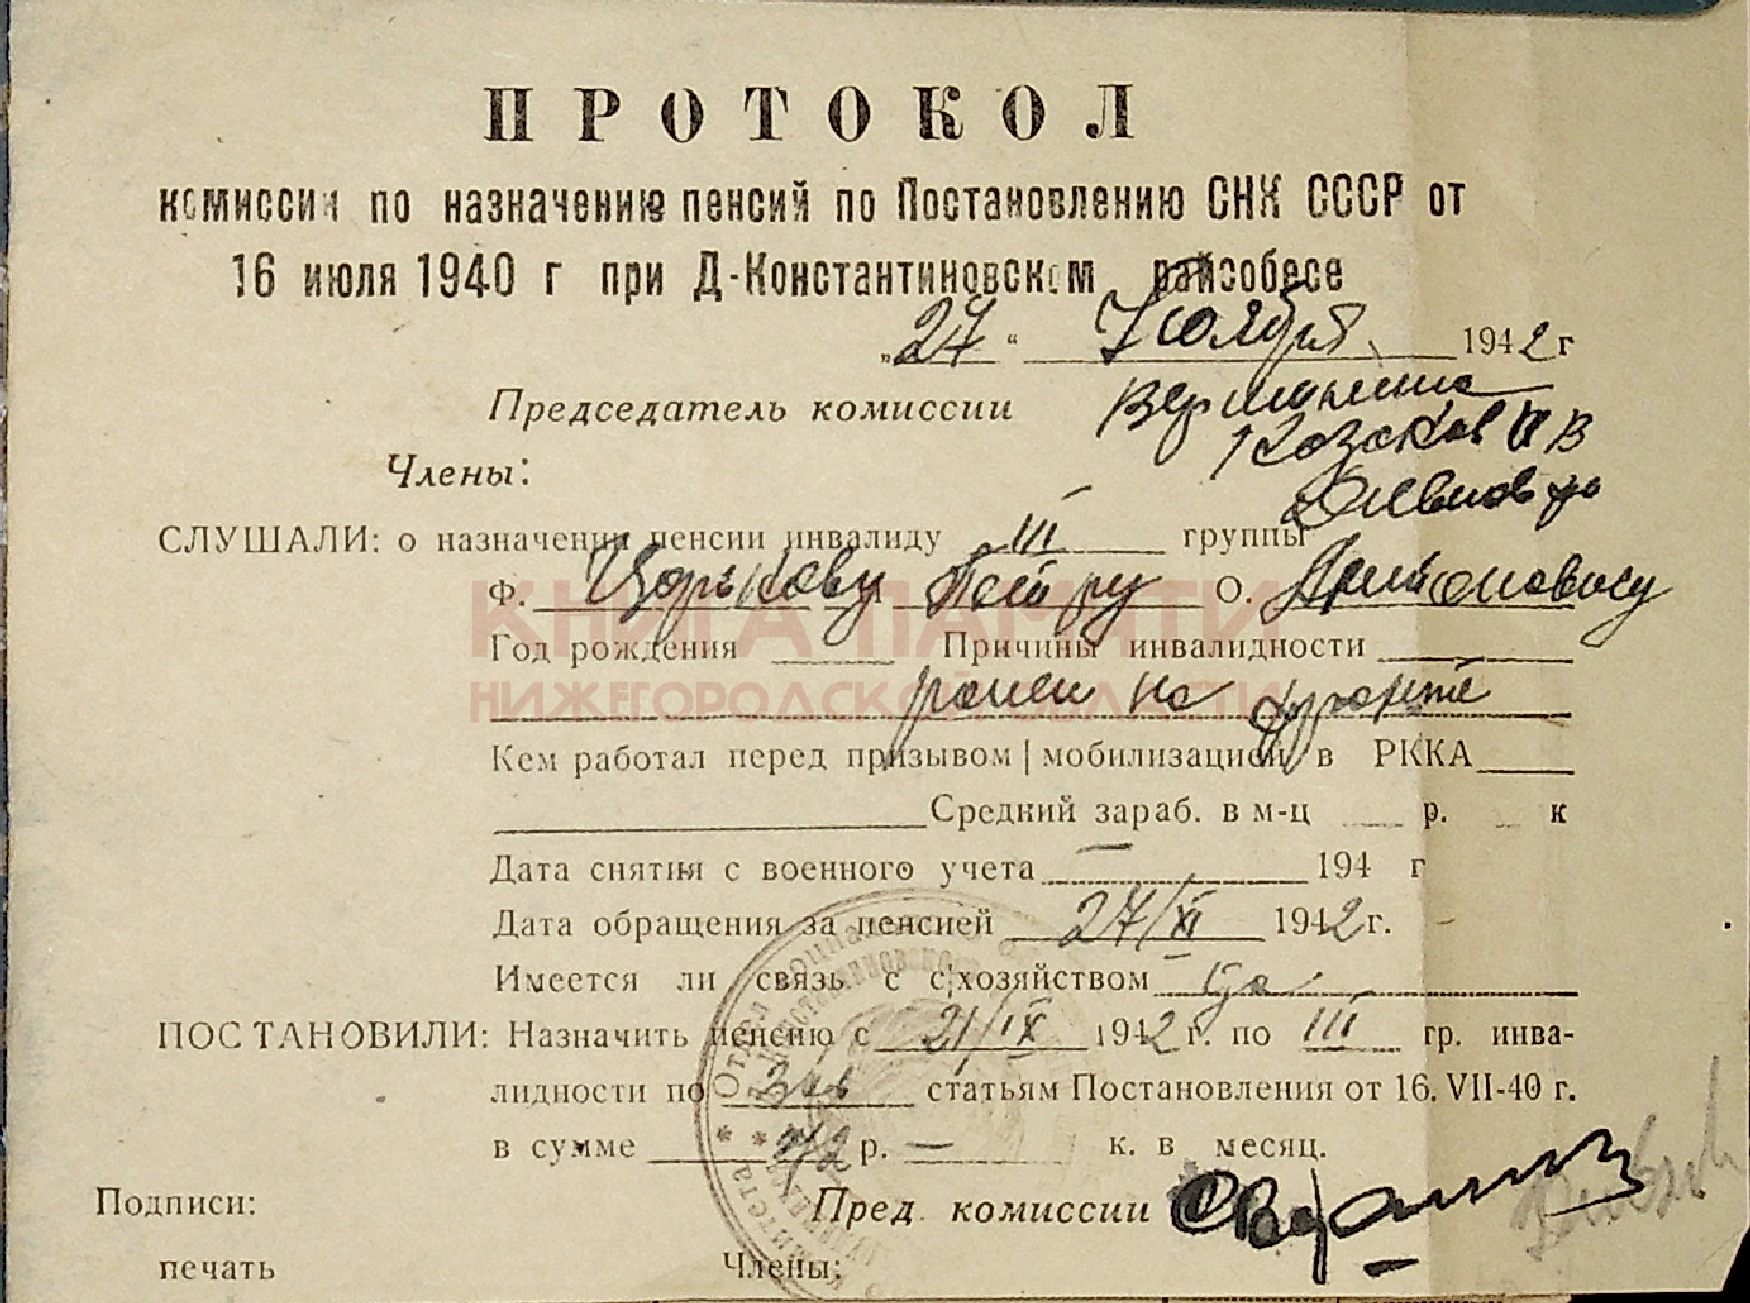 ПРОТОКОЛ
комиссии по назначению пенсий по Постановлению СНК СССР от
16 июля 1940 г при Д-Константиновском райсобесе
„27“ Ноября 1942 г
Председатель комиссии
Казаков
Члены:
СЛУШАЛИ: о назначении пенсии инвалиду III группы
Ф. Царькову Петру О. Антоновичу
Год рождения Причины инвалидности
ранен на фронте
Кем работал перед призывом | мобилизацией в РККА
Средний зараб. в м-ц р. к
Дата снятия с военного учета — 194 г
Дата обращения за пенсией 27/XI 1942 г.
Имеется ли связь с с|хозяйством да
ПОСТАНОВИЛИ: Назначить пенсию с 21/IX 1942 г. по III гр. инва-
лидности по статьям Постановления от 16. VII-40 г.
в сумме 72 р. — к. в месяц.
Подписи: Пред. комиссии
печать Члены:
КНИГА ПАМЯТИ
НИЖЕГОРОДСКОЙ ОБЛАСТИ